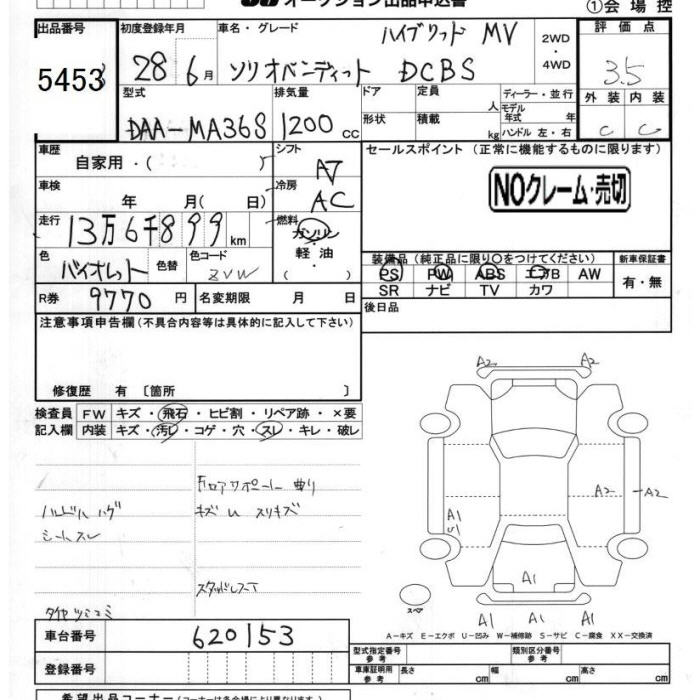 オークション出品申込書 ①会場控
出品番号 初度登録年月 車名・グレード ハイブリッド MV 2WD・4WD 評価点
5453 28年6月 ソリオバンディット DCBS 3.5
型式 排気量 ドア 定員 人 ディーラー・並行 外装 内装
DAA-MA36S 1200cc 形状 積載 kg モデル年式 年式 ハンドル 左・右 C C
車歴 自家用・( ) シフト A7 セールスポイント (正常に機能するものに限ります)
車検 年 月( 日) 冷房 AC NOクレーム・売切
走行 13万6千899km 燃料 ガソリン
軽油
( )
色 バイオレット 色替 色コード ZVW 装備品(純正品に限り○をつけてください) 新車保証書
PS PW ABS エアB AW 有・無
R券 9770円 名変期限 月 日 SR ナビ TV カワ
後日品
注意事項申告欄(不具合内容等は具体的に記入して下さい)
修復歴 有 〔箇所 〕
検査員 FW キズ・飛石・ヒビ割・リペア跡・×要
記入欄 内装 キズ・汚レ・コゲ・穴・スレ・キレ・破レ
A2 A2
フロアサポーター 曲り
ハンドル ハゲ キズ U スリキズ A2 A2
シートスレ A1 U1
スタッドレス
A1
スペア A1 A1 A1
A-キズ E-エクボ U-凹み W-補修跡 S-サビ C-腐食 XX-交換済
車台番号 620153 型式指定番号 参考 類別区分番号 参考
登録番号 車庫証明用 参考 長さ cm 幅 cm 高さ cm
希望出品コーナー(コーナーは各会場により異なります。)